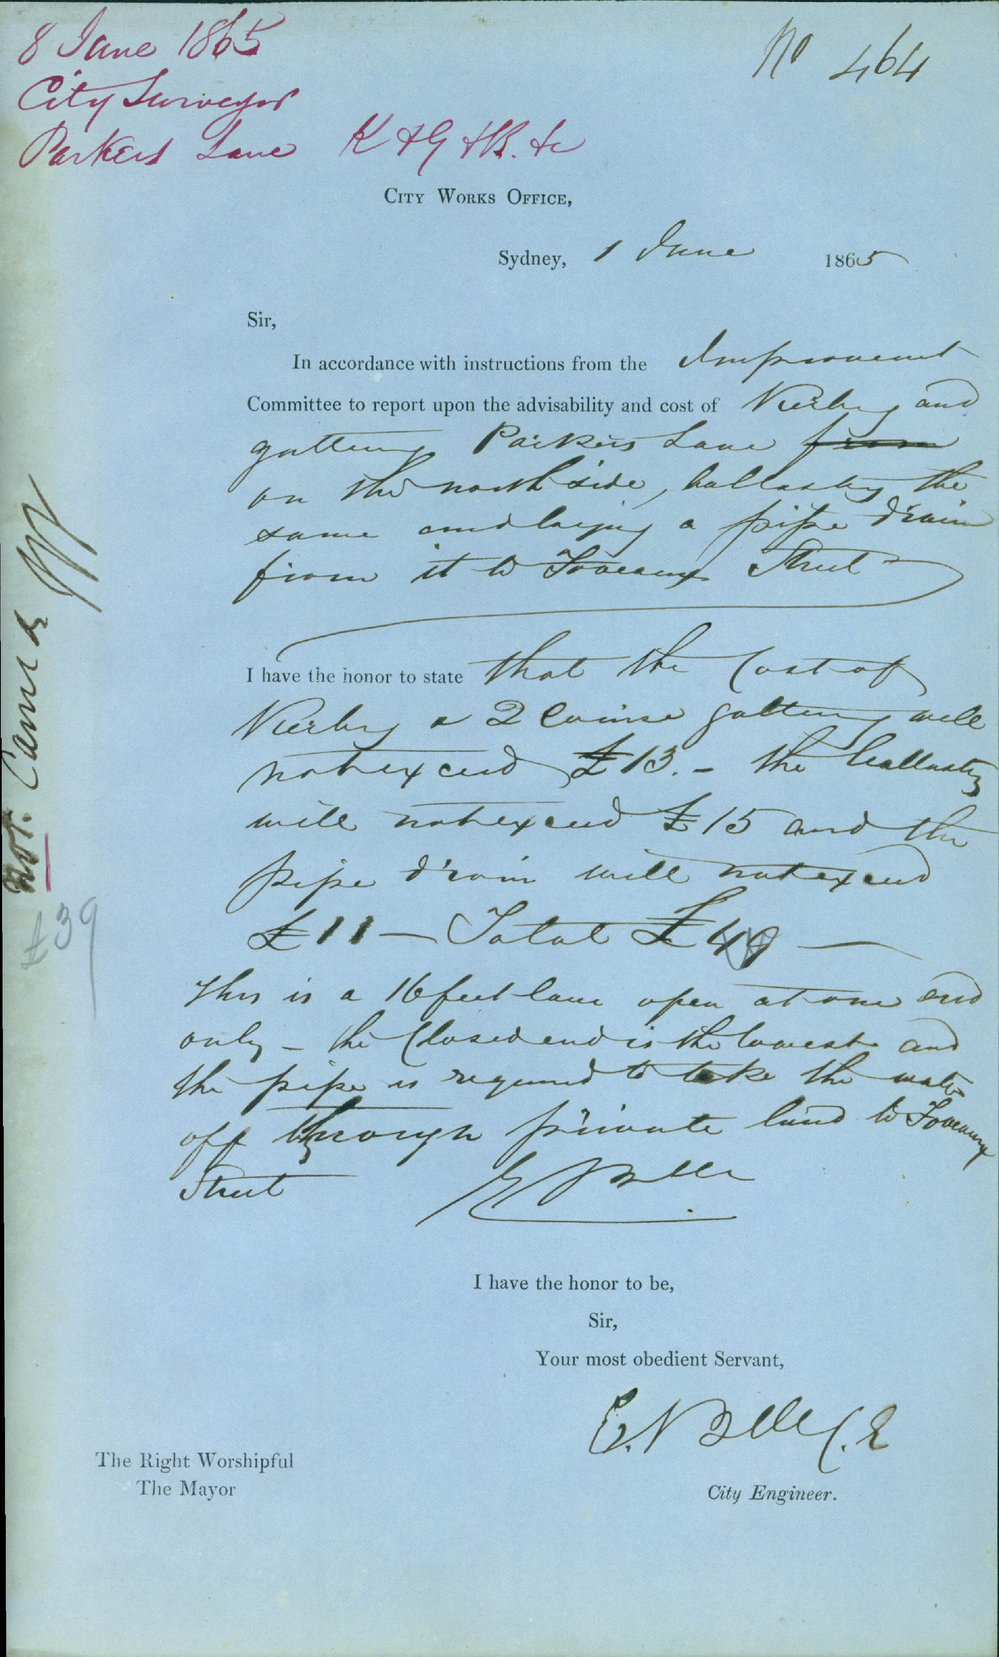 8 June 1865
No 464
City Surveyor
Parkers Lane K & G & B. &c
City Works Office,
Sydney, 1 June 1865
Sir,
In accordance with instructions from the Improvement
Committee to report upon the advisability and cost of Kerbing and
guttering Parkers Lane from
on the north side, ballasting the
same and laying a pipe drain
from it to Foveaux Street
I have the honor to state that the Cost of
Kerbing & 2 Course guttering will
not exceed £13. - the ballasting
will not exceed £15 and the
pipe drain will not exceed
£11 - Total £40
This is a 16 feet lane open at one end
only - the Closed end is the lowest and
the pipe is required to take the water
off through private land to Foveaux
Street
E Bell
I have the honor to be,
Sir,
Your most obedient Servant,
E. Bell C.E
City Engineer.
The Right Worshipful
The Mayor
Mot. Carried
£39